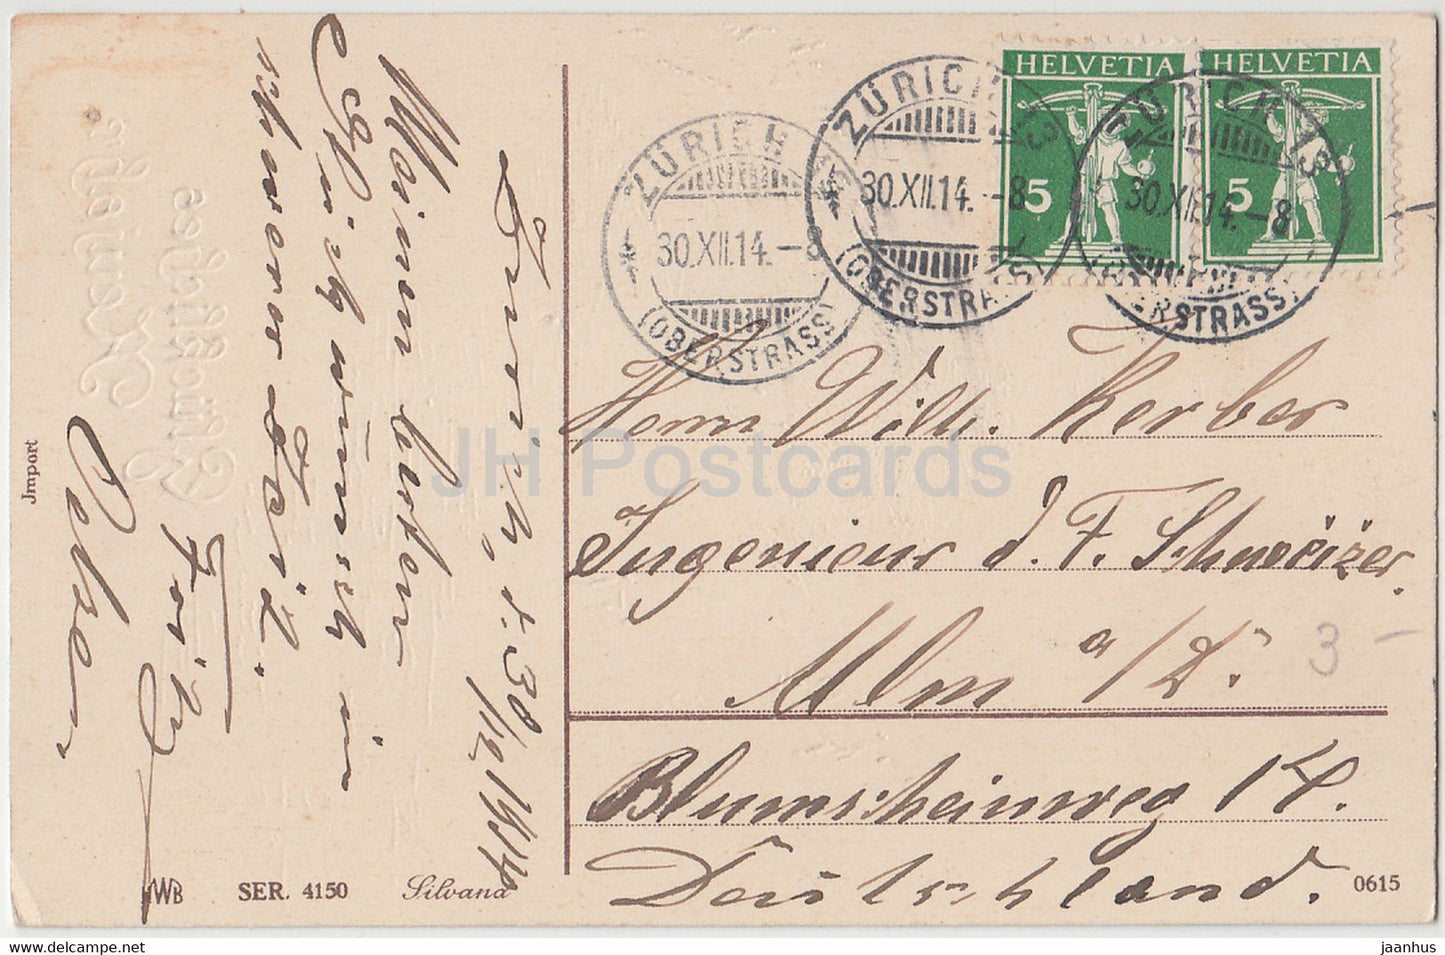 HELVETIA
5
HELVETIA
5
ZÜRICH 13
30.XII.14.-8
(OBERSTRASS)
ZÜRICH 13
30.XII.14.-8
(OBERSTRASS)
ZÜRICH 13
30.XII.14.-8
(OBERSTRASS)
Zürich, d. 30/12 1914
Meinen besten
Glückwunsch in
schwerer Zeit.
Fritz
Herrn Wilh. Kerber
Ingenieur
Ulm a/D.
Blumscheinweg 14.
Deutschland.
3 -
Import
WB
SER. 4150
Silvana
0615
JH Postcards
jaanhus